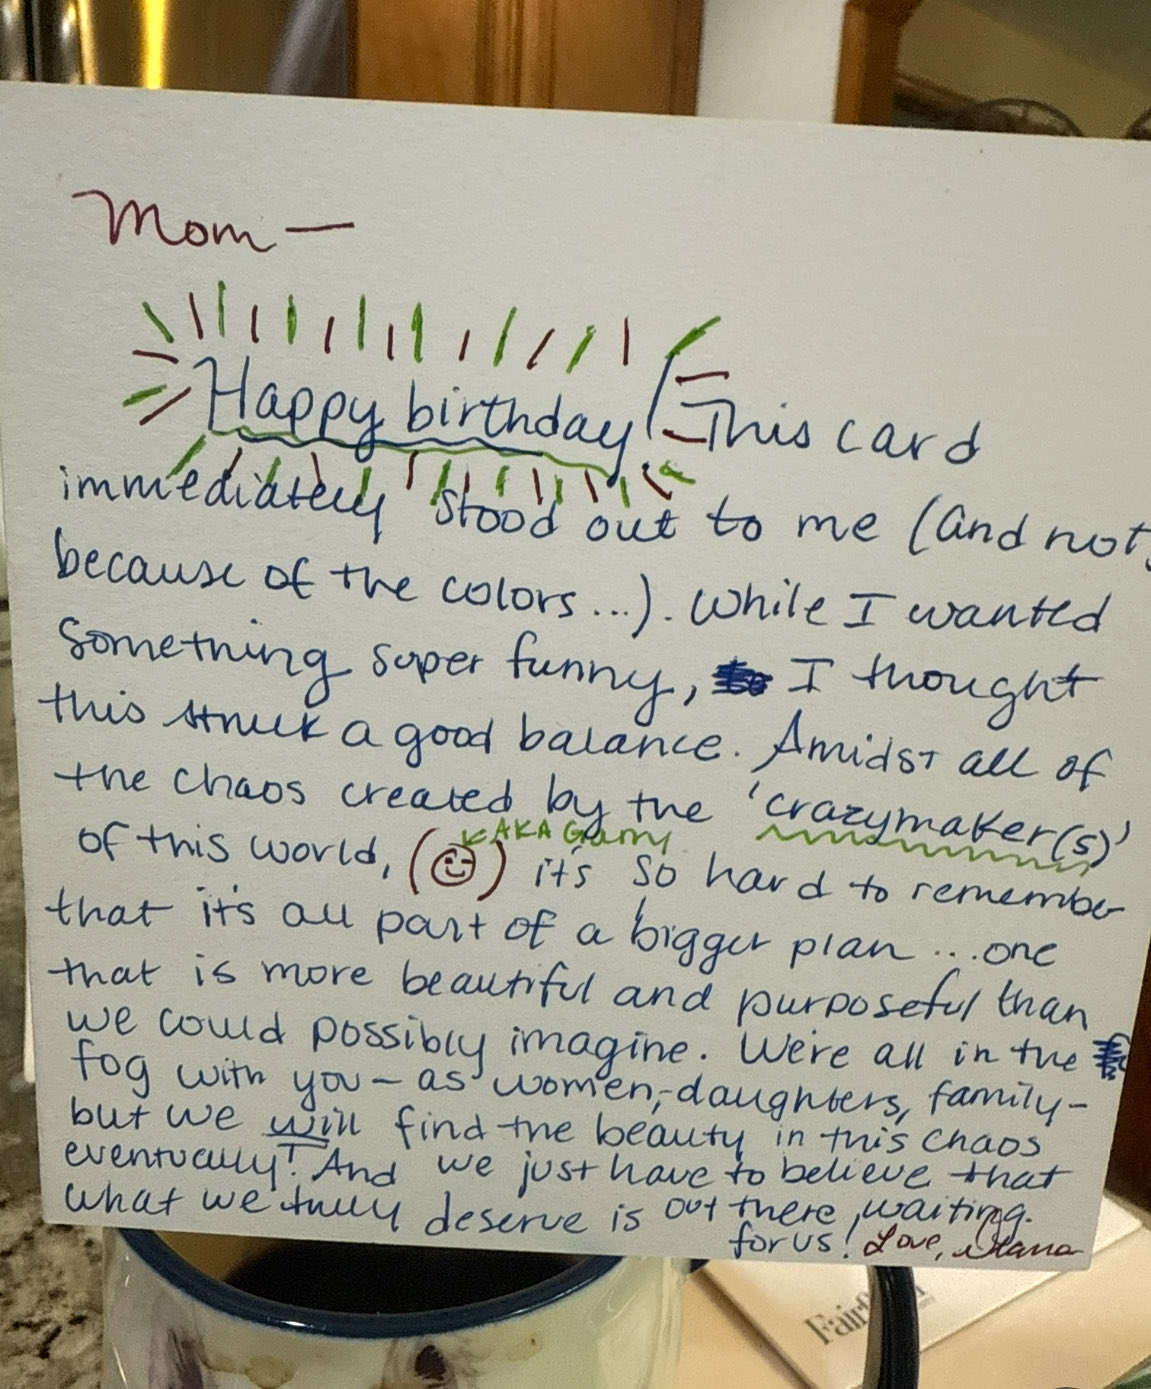 Mom —
Happy birthday! This card
immediately stood out to me (and not
because of the colors...). While I wanted
something super funny, I thought
this struck a good balance. Amidst all of
the chaos created by the 'crazymaker(s)'
AKA Garry
of this world, (☺) it's so hard to remember
that it's all part of a bigger plan...one
that is more beautiful and purposeful than
we could possibly imagine. We're all in the
fog with you – as women, daughters, family –
but we will find the beauty in this chaos
eventually! And we just have to believe that
what we truly deserve is out there, waiting
for us! Love,